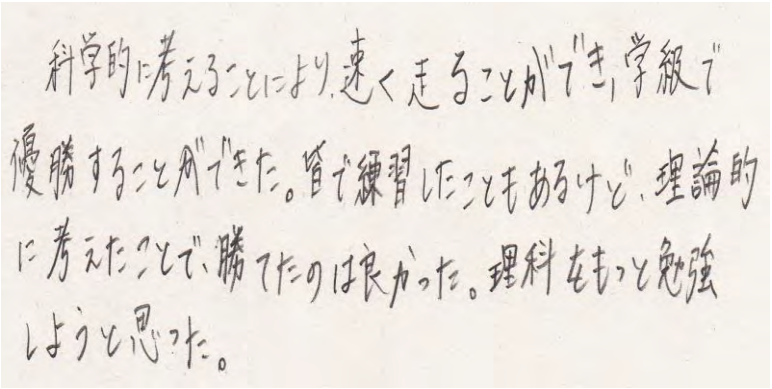 科学的に考えることにより、速く走ることができ、学級で
優勝することができた。皆で練習したこともあるけど、理論的
に考えたことで、勝てたのは良かった。理科をもっと勉強
しようと思った。